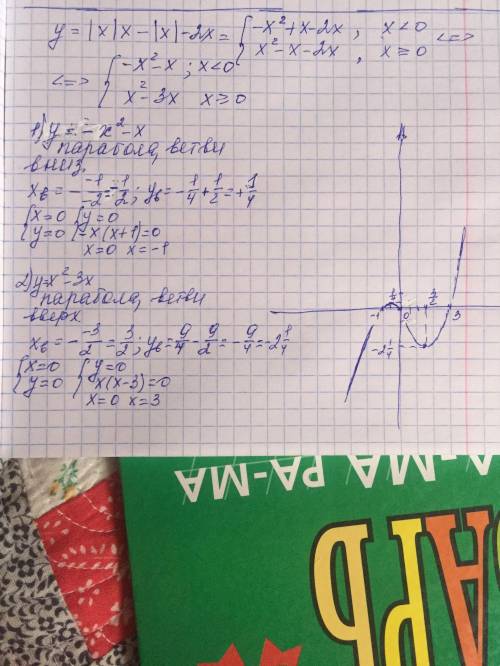 y = |x|x - |x| - 2x = { -x² + x - 2x , x < 0 <=>
x² - x - 2x , x ≥ 0
<=> { -x² - x ; x < 0
x² - 3x x ≥ 0
1) y = -x² - x
парабола, ветви
вниз.
xв = - -1/-2 = -1/2 ; yв = -1/4 + 1/2 = +1/4
{ x=0 { y=0
{ y=0 { -x(x+1)=0
x=0 x=-1
2) y=x²-3x
парабола, ветви
вверх
xв = - -3/2 = 3/2 ; yв = 9/4 - 9/2 = -9/4 = -2 1/4
{ x=0 { y=0
{ y=0 { x(x-3)=0
x=0 x=3
-1
0
3/2
3
-2 1/4
А-МА РА-МА
ВАРЬ